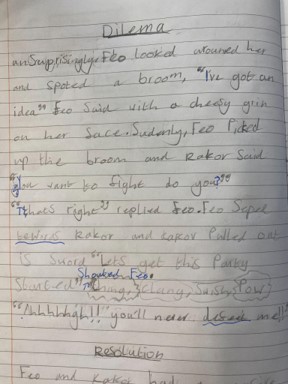 Dilema
anSuprisinglyFeo Looked around her
and spoted a broom, "I've got an
idea" Feo Said with a cheesy grin
on her Sace. Sudenly, Feo Picked
up the broom and Rakor Said
"You want to fight do you?"
"thats right" replied Feo. Feo
Rakov and Rakov Pulled out
is Sword "Lets get this Party
Shouted Feo.
Started" Clang, Sclang, Swish, Pow
"Ahhhhgh!!" you'll never me!!
Resolution
Feo and had a